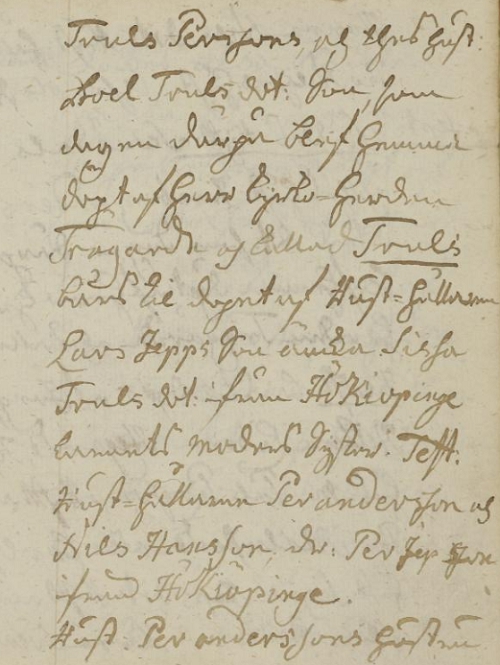 Truls Perssons, och thes hust:
Boel Truls dot: Son, som
dagen därpå blef hemma
döpt af Herr Kyrko-Herden
Tragardh och kallad Truls
bars til dopet af Hust-hållaren
Lars Jepps Son änka Sissa
Truls dot: ifrån HöKiöpinge
barnets moders Syster. Test.
Hust-hållaren Per andersson och
Nils Hansson, dr: Per Jep Son
ifrån HöKiöpinge.
Hust: Per anderssons hustru